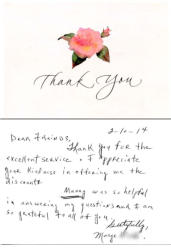 Thank You
2-10-14
Dear Friends,
Thank you for the
excellent service. I appreciate
your kindness in offering me the
discount.
Manny was so helpful
in answering my questions and I am
so grateful to all of you.
Gratefully,
Marge